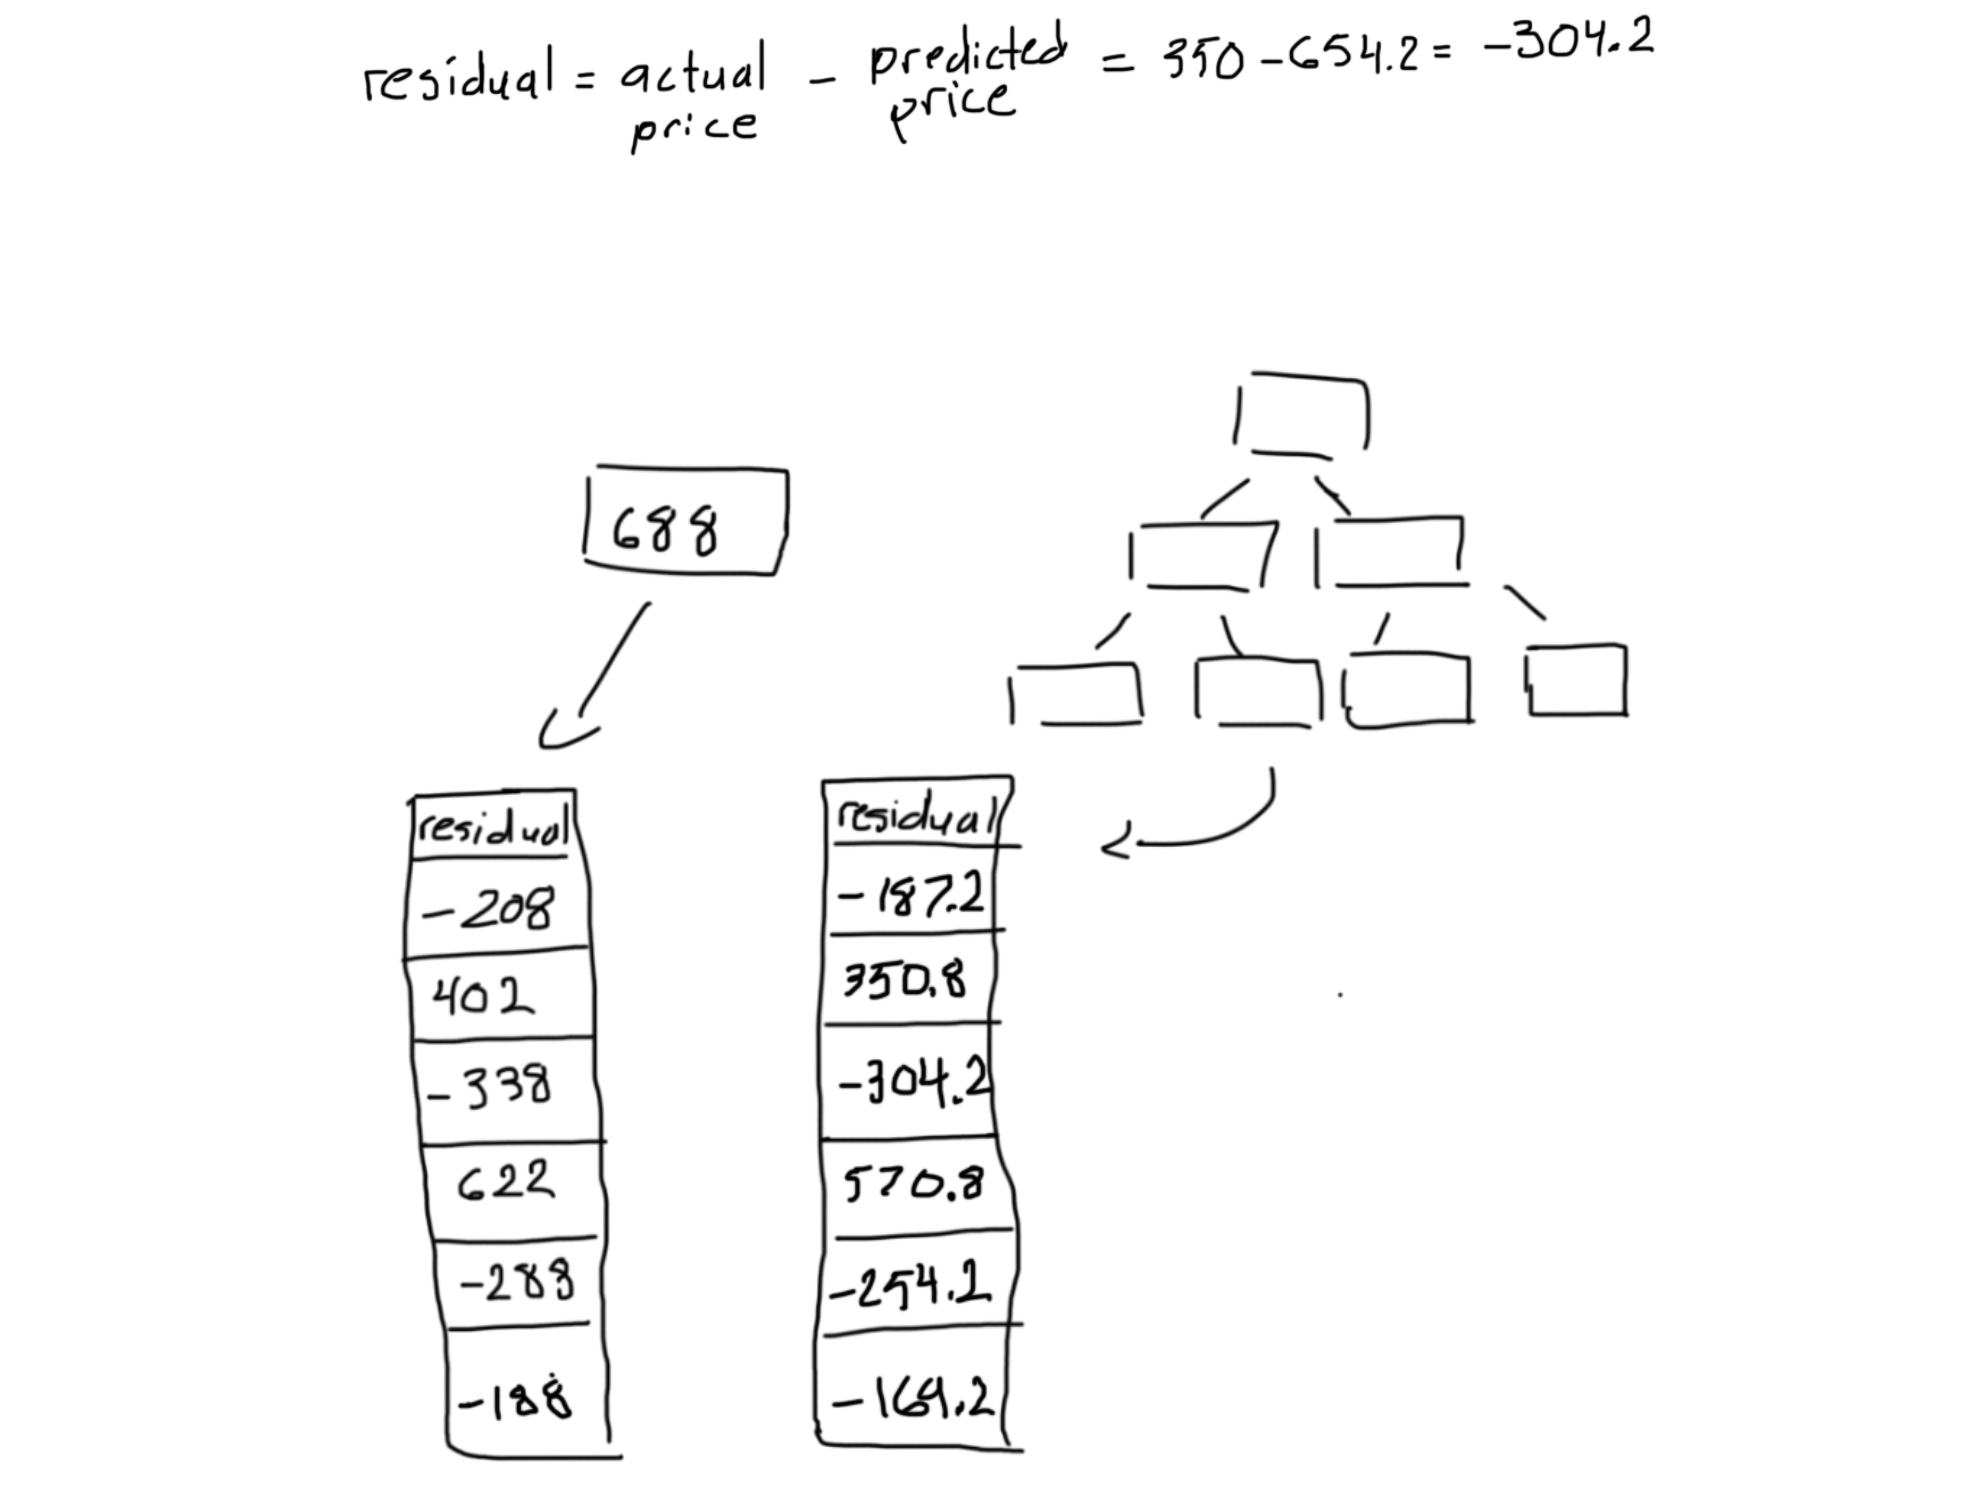 residual = actual price - predicted price = 350 - 654.2 = -304.2
688
residual
-208
402
-338
622
-288
-188
residual
-187.2
350.8
-304.2
570.8
-254.2
-169.2